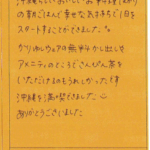 沖縄らしいおいしいお料理
の朝ごはんで幸せな気持ちで1日を
スタートすることができました。
かりゆしウェアの無料かし出しや
アメニティのところでさんぴん茶を
いただけるのもうれしかったです
沖縄を満喫できました
ありがとうございました